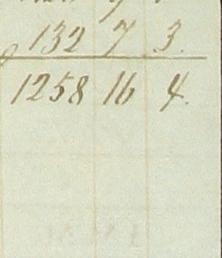 132 7 3.
1258 16 4.